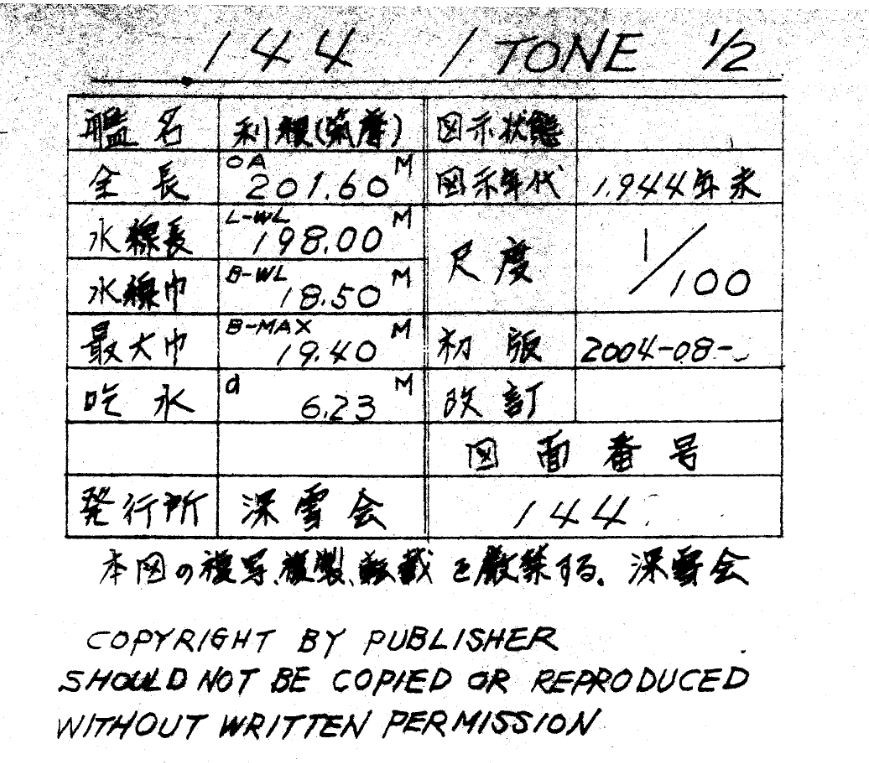 144 / TONE 1/2
艦名 利根(筑摩) 図示状態
全長 OA 201.60 M 図示年代 1944年末
水線長 L-WL 198.00 M 尺度 1/100
水線巾 B-WL 18.50 M
最大巾 B-MAX 19.40 M 初版 2004-08-
吃水 d 6.23 M 改訂
図面番号
発行所 深雪会 144
本図の複写、複製、転載を厳禁する。深雪会
COPYRIGHT BY PUBLISHER
SHOULD NOT BE COPIED OR REPRODUCED
WITHOUT WRITTEN PERMISSION